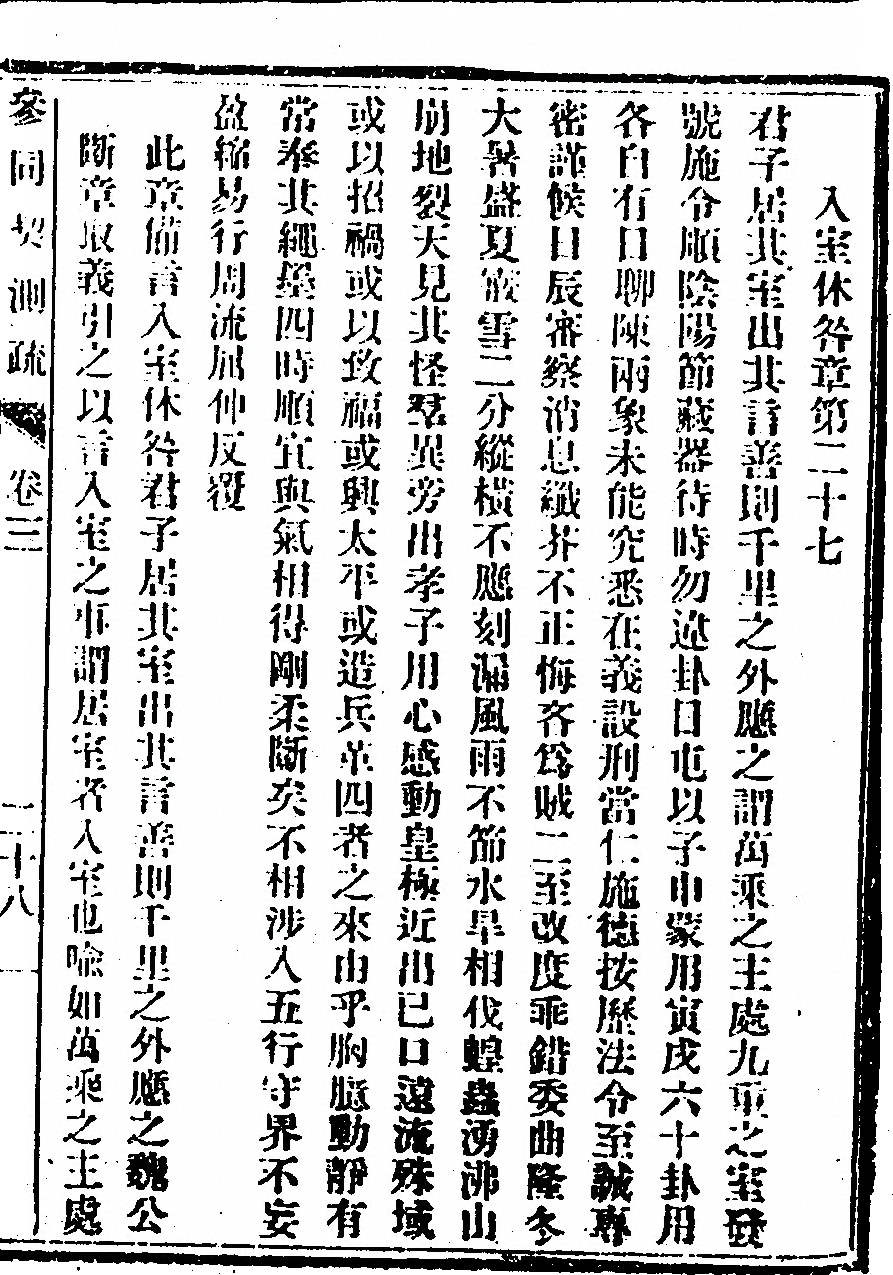 入室休咎章第二十七
君子居其室出其言善則千里之外應之謂萬乘之主處九重之室發
號施令順陰陽節藏器待時勿違卦日屯以子申蒙用寅戌六十卦用
各自有日聊陳兩象未能究悉在義設刑當仁施德按歷法令至誠專
密謹候日辰審察消息纖芥不正悔吝為賊二至改度乖錯委曲隆冬
大暑盛夏霰雪二分縱橫不應刻漏風雨不節水旱相伐蝗蟲湧沸山
崩地裂天見其怪羣異旁出孝子用心感動皇極近出己口遠流殊域
或以招禍或以致福或興太平或造兵革四者之來由乎胸臆動靜有
常奉其繩墨四時順宜與氣相得剛柔斷矣不相涉入五行守界不妄
盈縮易行周流屈伸反覆
此章備言入室休咎君子居其室出其言善則千里之外應之魏公
斷章取義引之以言入室之事謂居室者入室也喻如萬乘之主處
參同契測疏 卷三 二十八